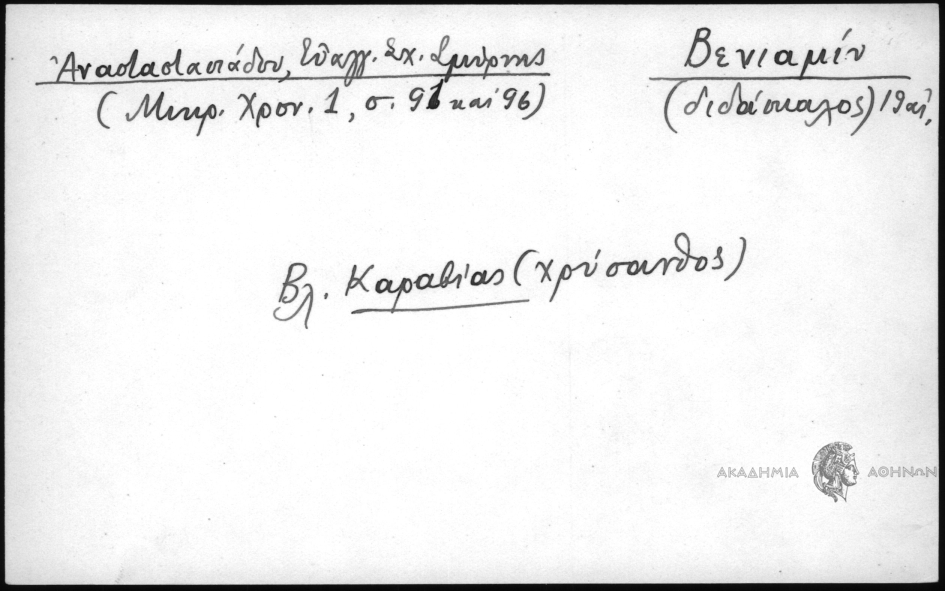 Ἀναστασιάδου, Εὐαγγ. Σχ. Σμύρνης
(Μικρ. Χρον. 1, σ. 91 καί 96)
Βενιαμίν
(διδάσκαλος) 19 αἰ.
Βλ. Καραβίας (Χρύσανθος)
ΑΚΑΔΗΜΙΑ ΑΘΗΝΩΝ